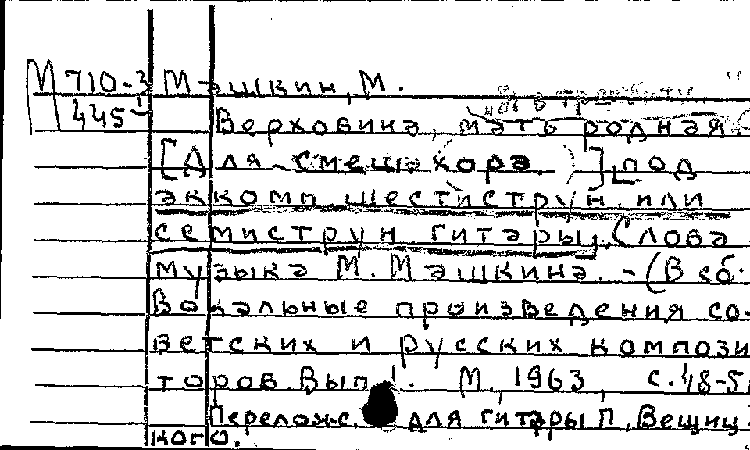 М 710-3 Машкин, М.
445 Верховина, мать родная.
[Для смеш. хора] под
аккомп. шестиструн. или
семиструн. гитары. Слова
музыка М. Машкина. - (В сб.
Вокальные произведения со-
ветских и русских компози
торов. Вып. 1. М., 1963, с. 48-5
Перелож. для гитары П. Вещиц-
кого.